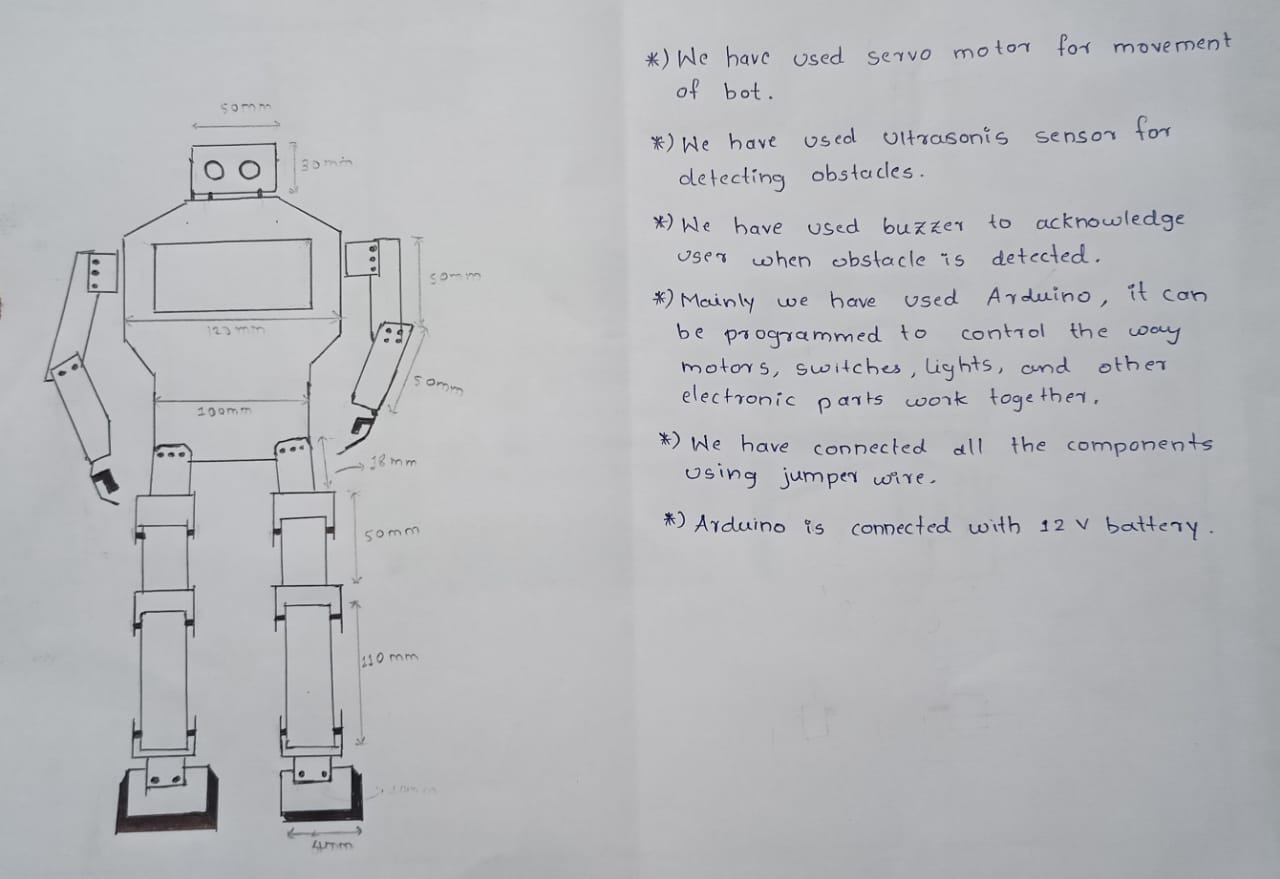 50mm
30min
50mm
123mm
50mm
100mm
18mm
50mm
110mm
4mm
*) We have used servo motor for movement
of bot.
*) We have used Ultrasonis sensor for
detecting obstacles.
*) We have used buzzer to acknowledge
user when obstacle is detected.
*) Mainly we have used Arduino, it can
be programmed to control the way
motors, switches, lights, and other
electronic parts work together.
*) We have connected all the components
using jumper wire.
*) Arduino is connected with 12 V battery.